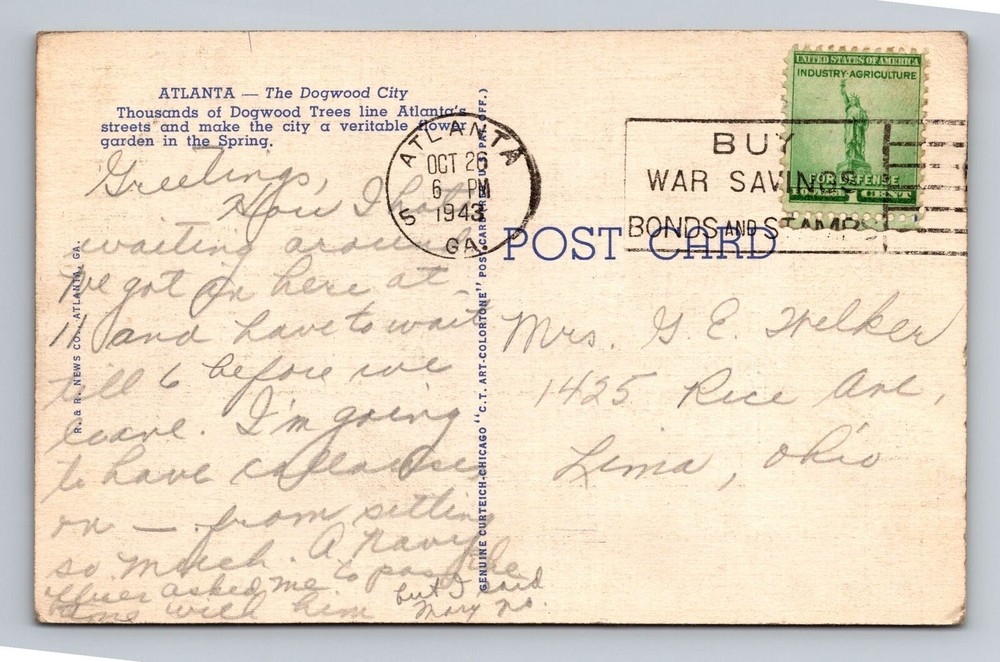 ATLANTA — The Dogwood City
Thousands of Dogwood Trees line Atlanta's
streets and make the city a veritable flower
garden in the Spring.
Greetings,
How I hate
waiting around
We got in here at
11 and have to wait
till 6 before we
leave. I'm going
to have callouses
on — from sitting
so much. A Navy
officer asked me to pass the
time with him but I said
Mary no.
R. & R. NEWS CO., ATLANTA, GA.
GENUINE CURTEICH-CHICAGO "C.T. ART-COLORTONE" POST CARD (REG. U.S. PAT. OFF.)
ATLANTA
OCT 26
6 PM
1943
5 GA.
BUY
WAR SAVINGS
BONDS AND STAMPS
UNITED STATES OF AMERICA
INDUSTRY·AGRICULTURE
FOR DEFENSE
1 CENT
POST CARD
Mrs. G. E. Welker
1425 Rice Ave,
Lima, Ohio